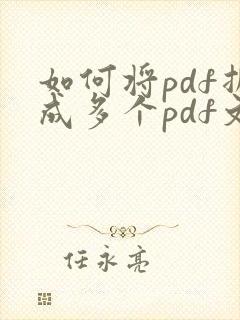 如何将pdf
成多个pdf
任永亮